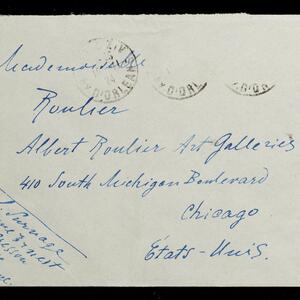 Mademoiselle
Roulier
Albert Roulier Art Galleries
410 South Michigan Boulevard
Chicago
États-Unis.
D'ORLEANS
D'ORL
Survage